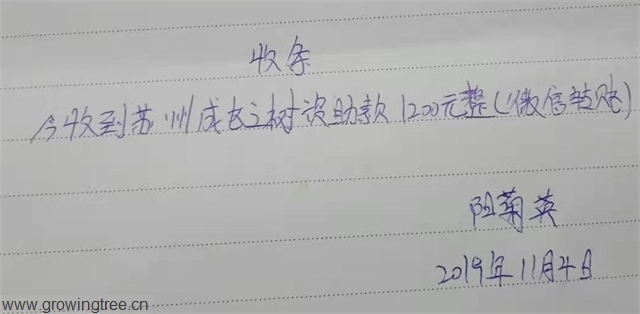 收条
今收到苏州成长之树资助款1200元整(微信转账)
阻菊英
2019年11月4日
www.growingtree.cn